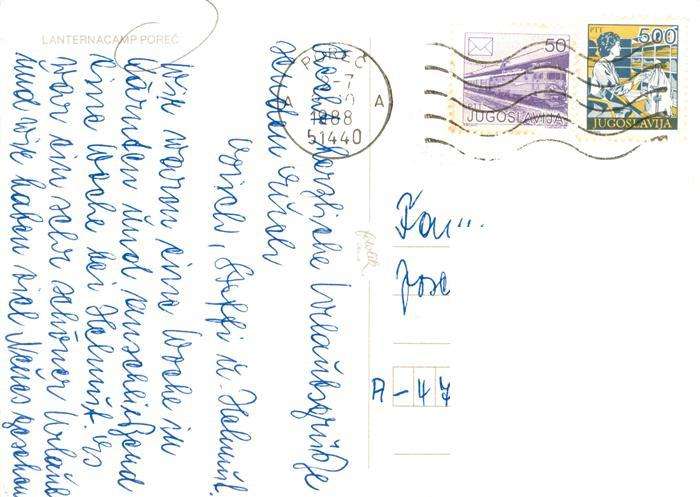 LANTERNACAMP POREČ
POREČ
A A
1988
51440
50
PTT
JUGOSLAVIJA
PTT
500
JUGOSLAVIJA
Recht herzliche Urlaubsgrüße
senden Euch
Erich, Steffi u. Helmut.
Wir waren eine Woche in
Kärnten und anschließend
eine Woche bei Helmut. Es
war ein sehr schöner Urlaub
und wir haben viel Neues gesehen
Fam
Jose
A-47